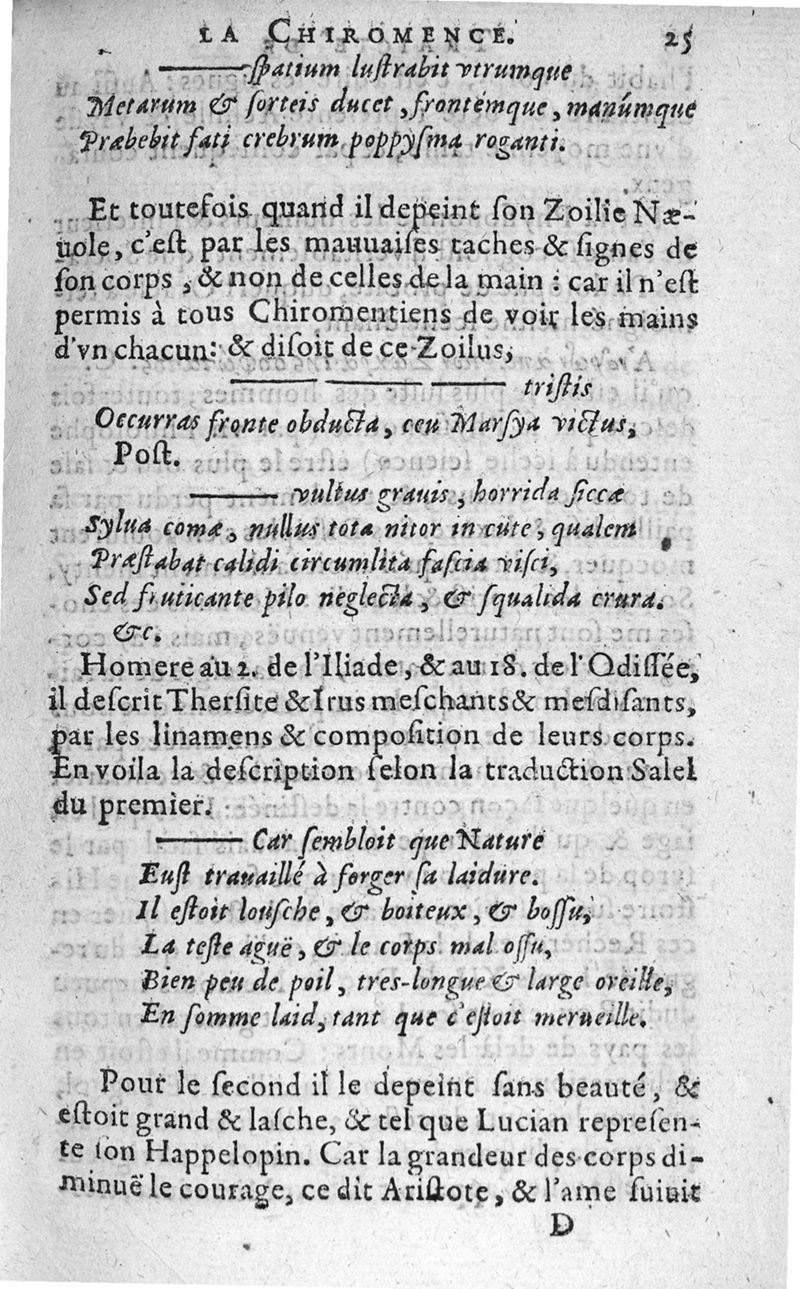 LA CHIROMENCE. 25
———ſpatium luſtrabit vtrumque
Metarum & ſorteis ducet, frontémque, manúmque
Præbebit fati crebrum poppyſma roganti.
Et toutefois quand il depeint ſon Zoilie Næ-
uole, c'eſt par les mauuaiſes taches & ſignes de
ſon corps, & non de celles de la main : car il n'eſt
permis à tous Chiromentiens de voir les mains
d'vn chacun: & diſoit de ce Zoilus,
——— ——— ——— triſtis
Occurras fronte obducta, ceu Marſya victus,
Poſt.
——— vultus grauis, horrida ſiccæ
Sylua comæ, nullus tota nitor in cute, qualem
Præſtabat calidi circumlita faſcia viſci,
Sed fruticante pilo neglecta, & ſqualida crura.
&c.
Homere au 2. de l'Iliade, & au 18. de l'Odiſſée,
il deſcrit Therſite & Irus meſchants & meſdiſants,
par les linamens & compoſition de leurs corps.
En voila la deſcription ſelon la traduction Salel
du premier.
——— Car ſembloit que Nature
Euſt trauaillé à forger ſa laidure.
Il eſtoit louſche, & boiteux, & boſſu,
La teſte aguë, & le corps mal oſſu,
Bien peu de poil, tres-longue & large oreille,
En ſomme laid, tant que c'eſtoit merueille.
Pour le ſecond il le depeint ſans beauté, &
eſtoit grand & laſche, & tel que Lucian repreſen-
te ſon Happelopin. Car la grandeur des corps di-
minuë le courage, ce dit Ariſtote, & l'ame ſuiuit
D